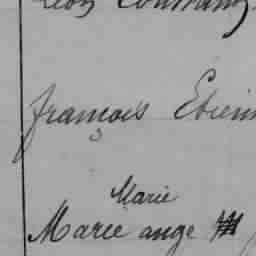 françois Etien
Marie
Marie ange